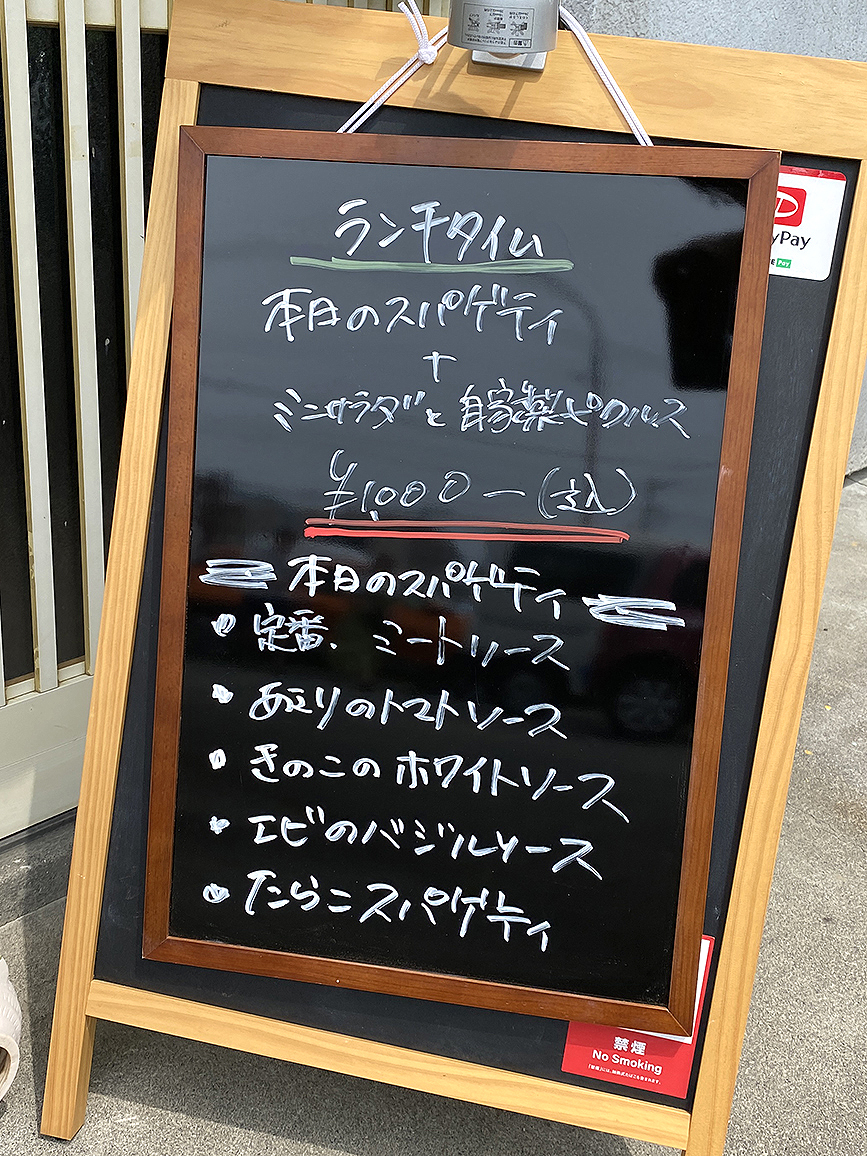 ランチタイム
本日のスパゲティ
+
ミニサラダと自家製ピクルス
¥1,000-(込)
本日のスパゲティ
• 定番、ミートソース
• あさりのトマトソース
• きのこのホワイトソース
• エビのバジルソース
• たらこスパゲティ
yPay
Pay
禁煙
No Smoking